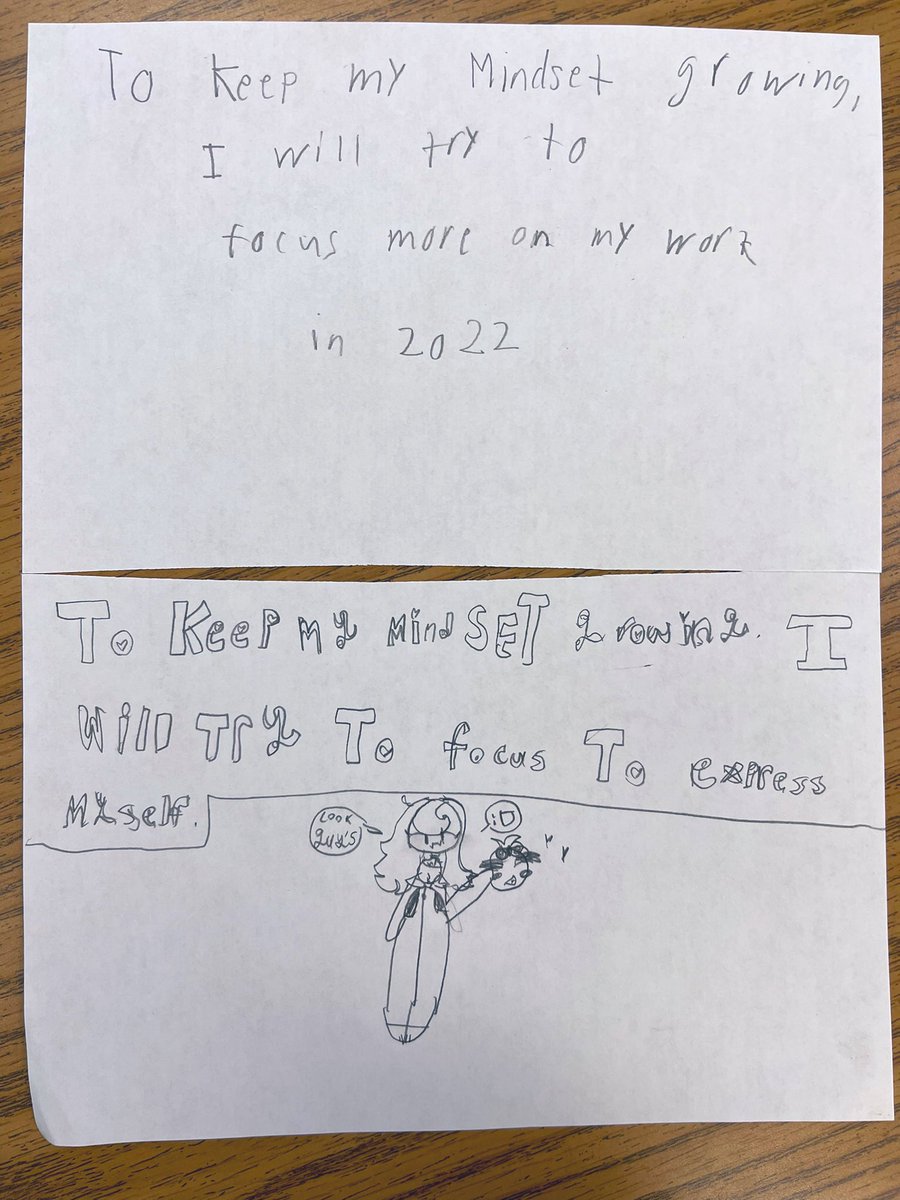 To Keep my Mindset growing,
I will try to
focus more on my work
in 2022
To Keep my MindSET growing. I
Will Try To focus To express
Myself.
LOOK
guy's
:D